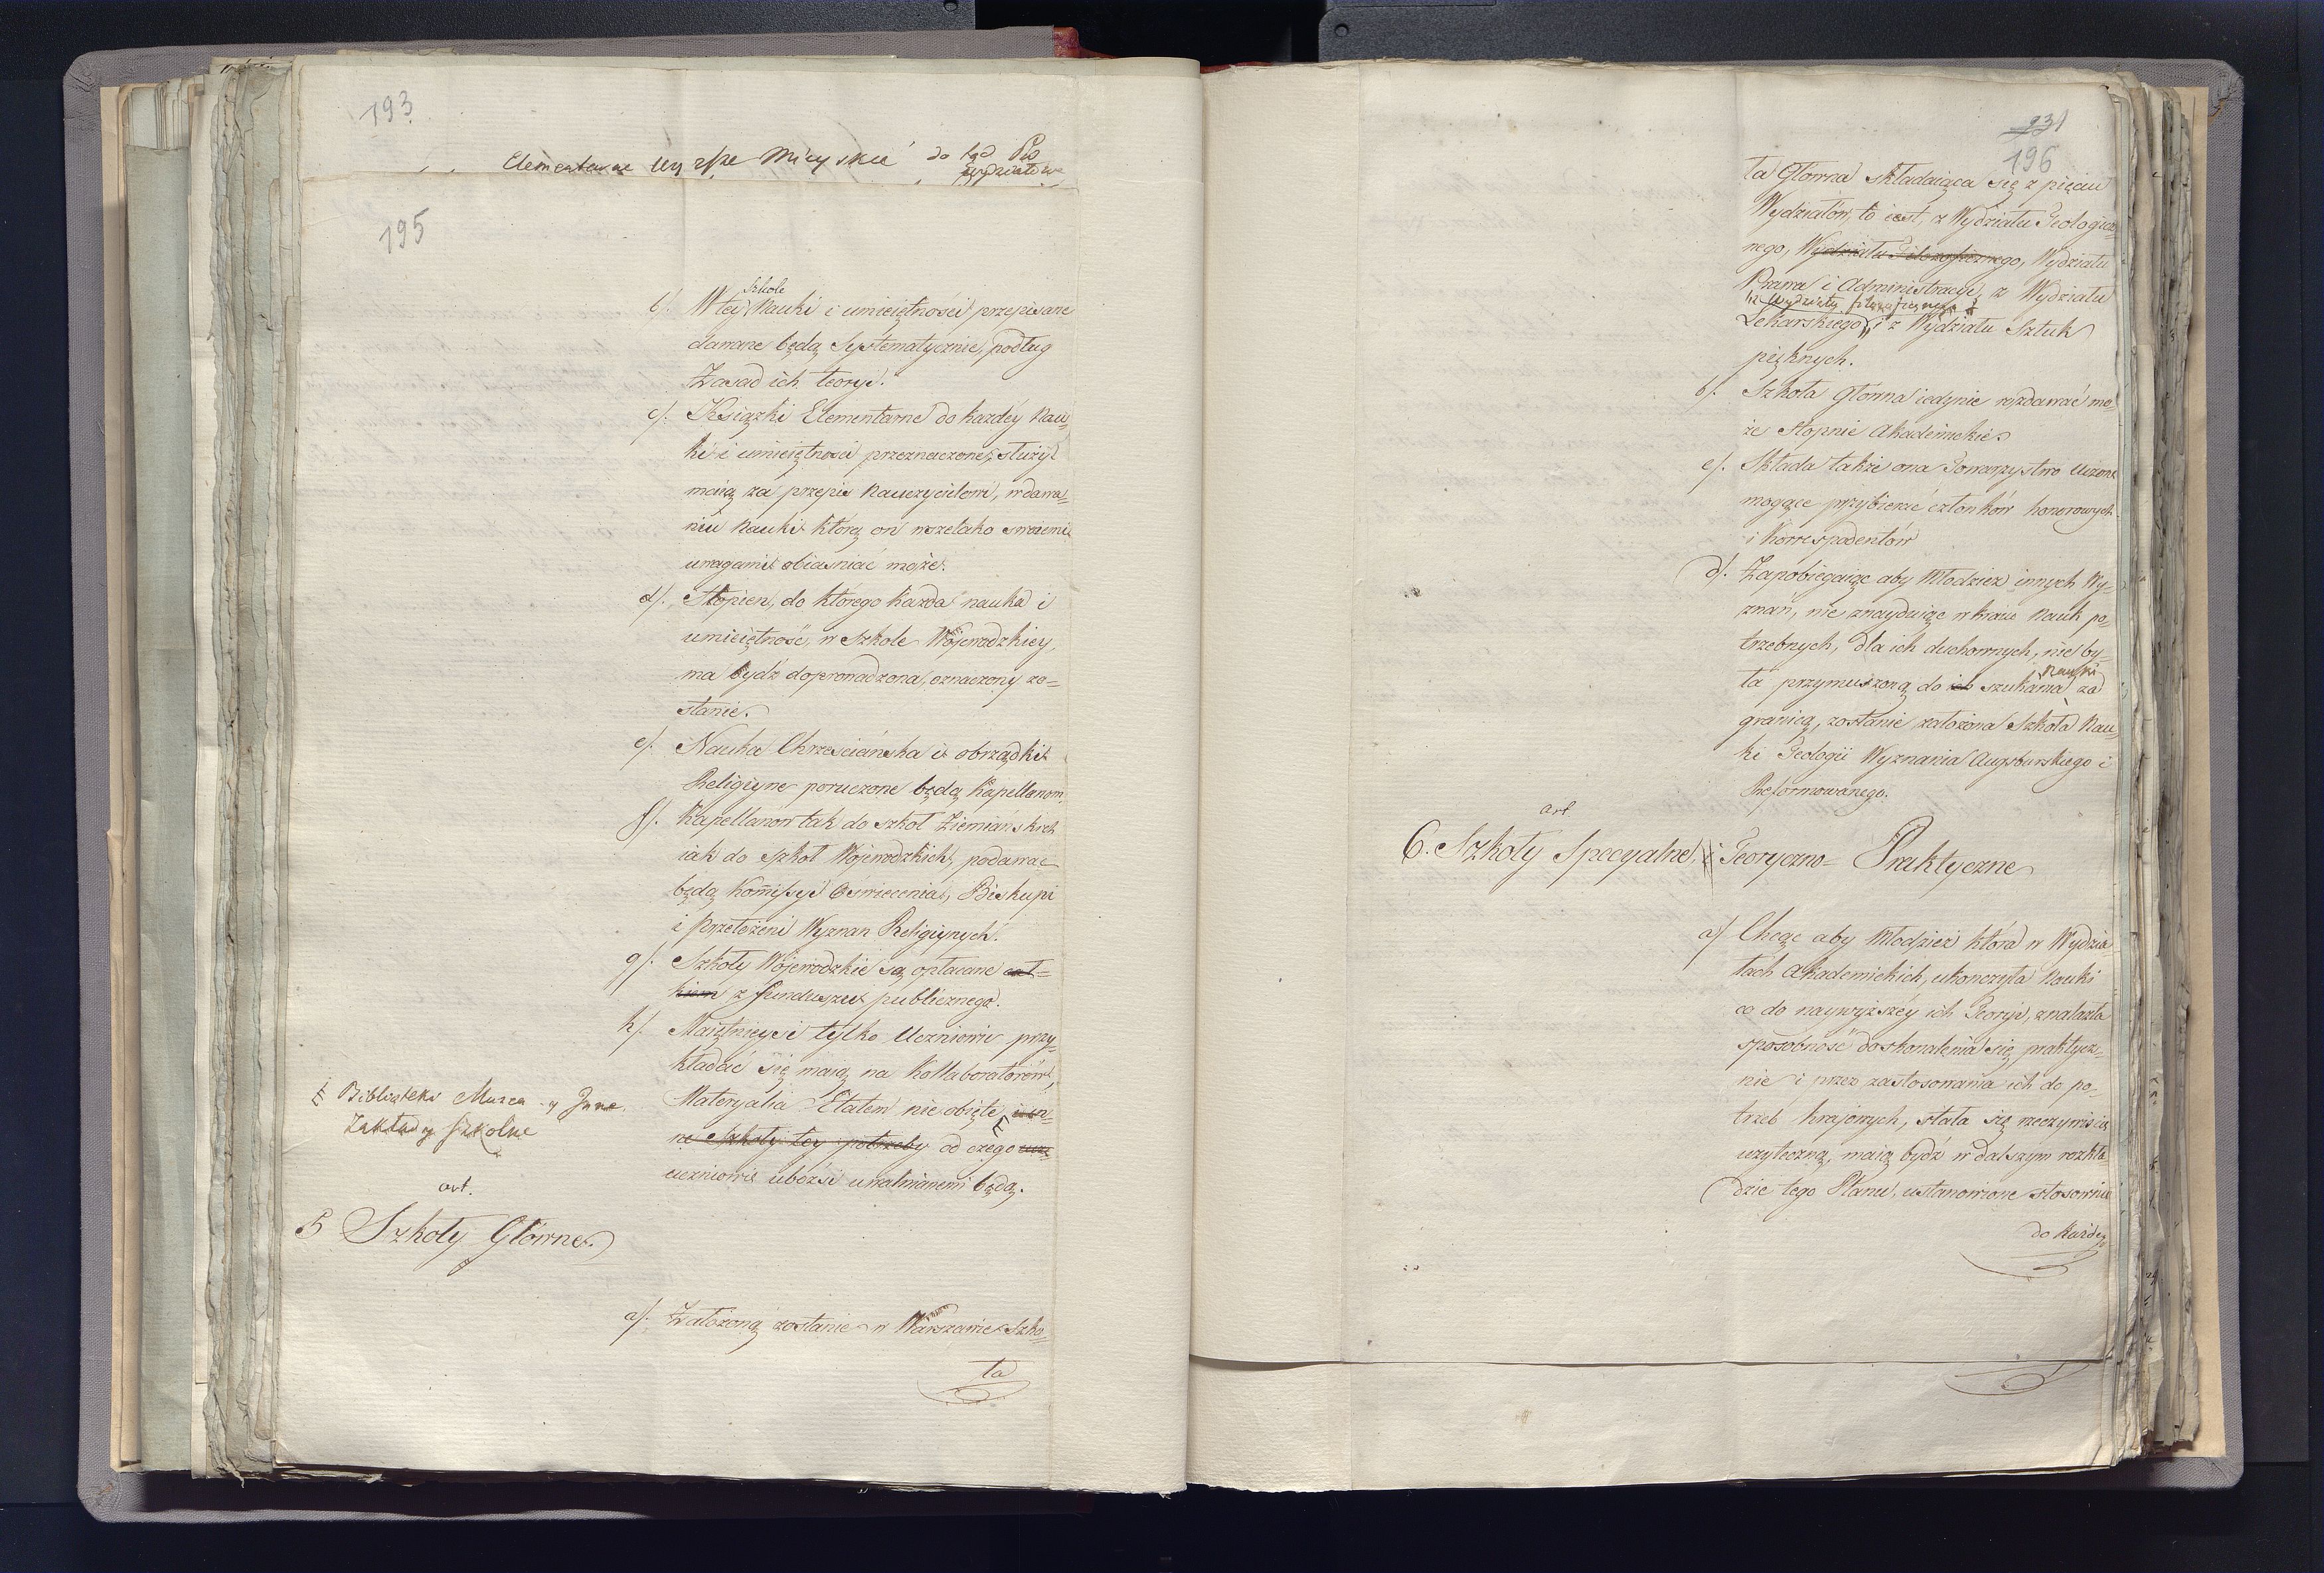 193
Elementarne Wyższe Mieyskie do tąd Pod
Wydziałowe
195
Szkole
b/. W tey Nauki i umieiętności przepisane
dawane będą Systematycznie, podług
Zasad ich teoryi.
c/. Książki Elementarne do każdéy Nau=
ki i umieiętności przeznaczone, służyć
maią za przepis Nauczycielowi, w dawa=
niu Nauki którą on wszelako swoiemi
uwagami obiasniać może.
d/. Stopien, do którego każda nauka i
umieiętność, w Szkole Wojewodzkiey,
ma bydź doprowadzona, oznaczony zo=
stanie.
e/. Nauka Chrześciańska i obrządki
Religiyne poruczone będą Kapellanom.
f/. Kapellanów tak do szkoł Ziemianskich
iak do szkoł Wojewodzkich, podawać
będą Kommissyi Oswiecenia, Biskupi
i Przełożeni Wyznan Religiynych.
g/. Szkoły Wojewodzkie są opłacane cał=
kiem z funduszu publicznego.
h/. Maiętnieysi tylko Uczniowie przy=
kładać się maią na Kollaboratorów,
Materyalia Etatem nie obięte i in=
ne Szkoły tey potrzeby od czego ucz=
uczniowie ubożsi uwalnianemi będą.
i Biblioteka Muzea y Inne
Zakłady szkolne
art.
5 Szkoły Główne.
a/. Założoną zostanie w Warszawie Szko=
ła
231
196
ła Główna składaiąca się z pięciu
Wydziałów, to iest, z Wydziału Teologicz=
nego, Wydziału Filozoficznego, Wydziału
Prawa i Administracyi, z Wydziału
z Wydziału filozoficznego
Lekarskiego, i z Wydziału Sztuk
pięknych.
b/. Szkoła Główna iedynie rozdawać mo=
że stopnie Akademickie.
c/. Składa także ona Towarzystwo Uczone
mogące przybierać członków honorowych
i Korrespodentów
d/. Zapobiegaiąc aby Młodzież innych Wy=
znań, nie znayduiąc w kraiu Nauk po=
trzebnych, dla ich duchownych, nie by=
Nauki
ła przymuszoną do ich szukania za
granicą, zostanie założona Szkoła Nau=
ki Teologii Wyznania Augsburskiego i
Reformowanego.
art.
6. Szkoły Specyalne, i Teoryczno= Praktyczne
a/ Chcąc aby Młodzież która w Wydzia=
łach Akademickich, ukończyła Nauki
co do naywyższéy ich Teoryi, znalazła
sposobność doskonalenia się, praktycz=
nie i przez zastosowania ich do po=
trzeb krajowych, stała się rzeczywiscie
użyteczną, maią bydź w dalszym rozkła=
dzie tego Planu, ustanowione stosownie
do każdey